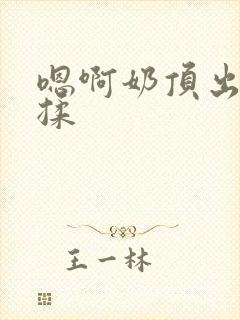 嗯啊奶頂出
揉
王一林